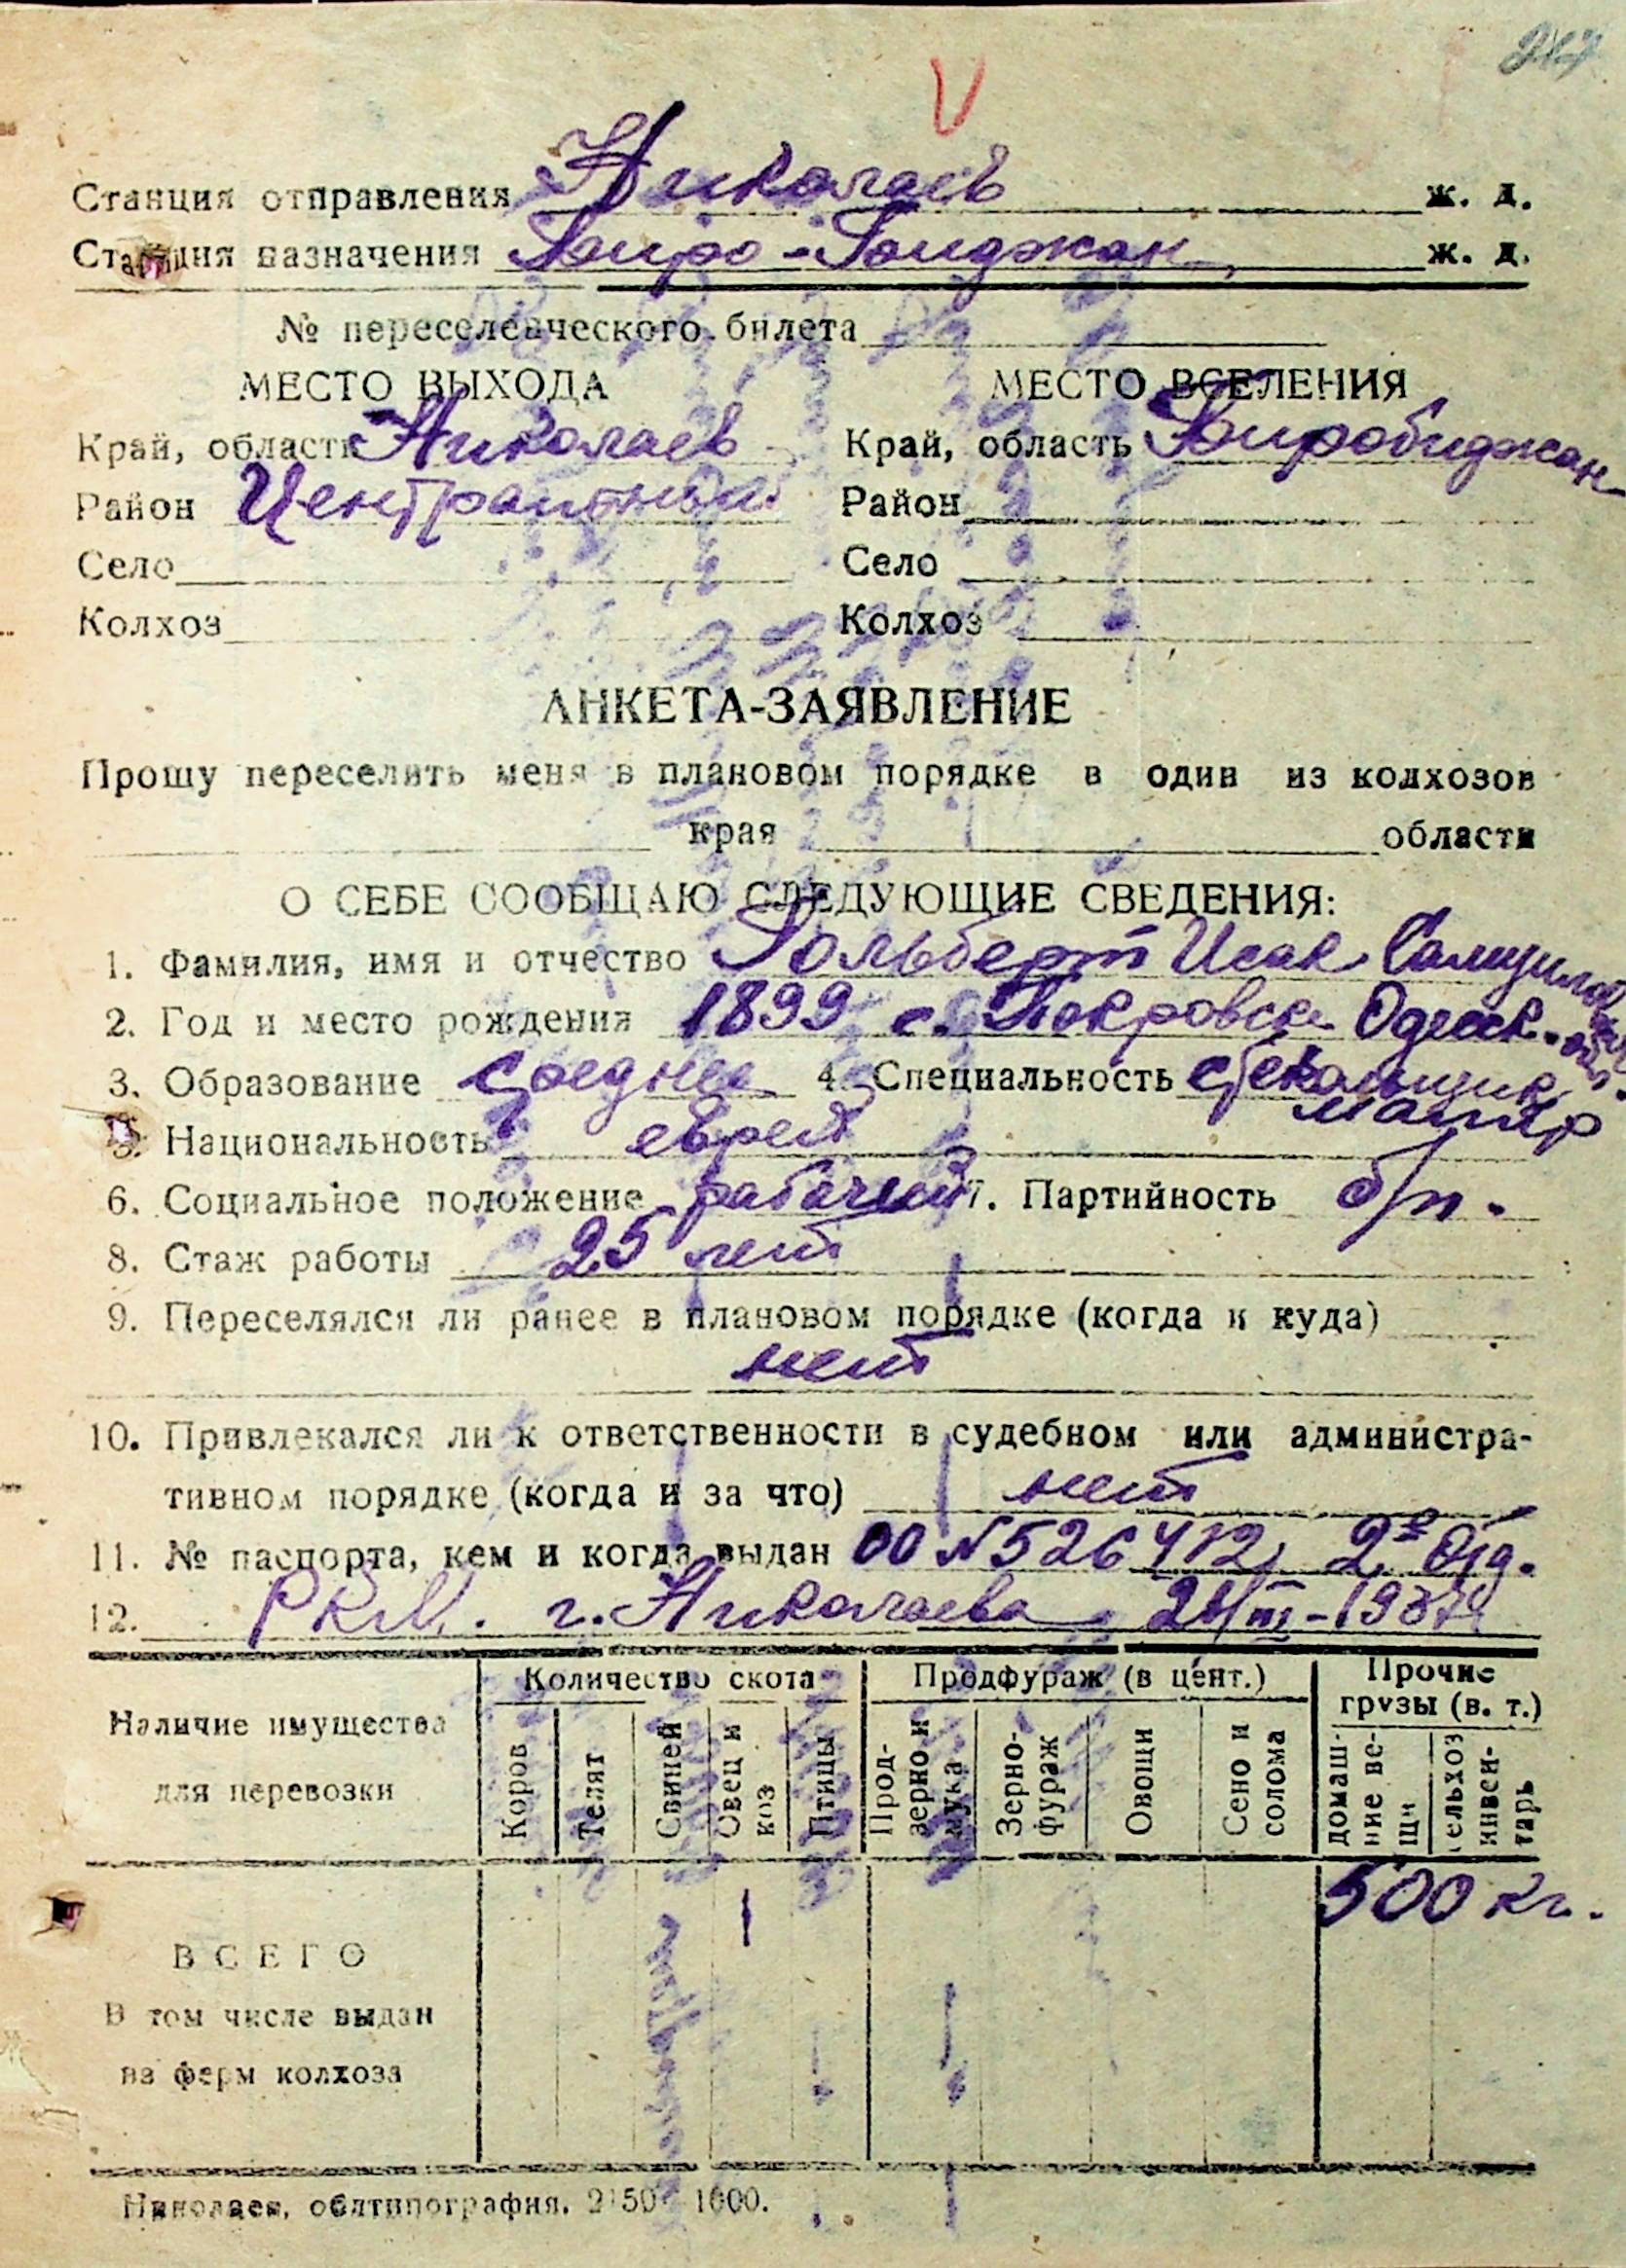 Станция отправления Николаев ж. д.
Станция назначения Биро-Биджан ж. д.
№ переселенческого билета
МЕСТО ВЫХОДА МЕСТО ВСЕЛЕНИЯ
Край, область Николаев Край, область Биробиджан
Район Центральный Район
Село Село
Колхоз Колхоз
АНКЕТА-ЗАЯВЛЕНИЕ
Прошу переселить меня в плановом порядке в один из колхозов
края области
О СЕБЕ СООБЩАЮ СЛЕДУЮЩИЕ СВЕДЕНИЯ:
1. Фамилия, имя и отчество Гольберт Исак Самуилов
2. Год и место рождения 1899 с. Покровск Одесск. обл.
3. Образование среднее 4. Специальность стекольщик
маляр
5. Национальность еврей
6. Социальное положение рабочий 7. Партийность б/п.
8. Стаж работы 25 лет
9. Переселялся ли ранее в плановом порядке (когда и куда)
нет
10. Привлекался ли к ответственности в судебном или администра-
тивном порядке (когда и за что) нет
11. № паспорта, кем и когда выдан 00 N 526412, 2е Отд.
12. РКМ. г. Николаева
Наличие имущества для перевозки
Количество скота Продфураж (в цент.) Прочие грузы (в. т.)
Коров Телят Свиней Овец и коз Птицы Прод-зерно и мука Зерно-фураж Овощи Сено и солома домаш-ние ве-щи сельхоз инвен-тарь
500 кг.
ВСЕГО
В том числе выдан
из ферм колхоза
Николаев, облтипография. 2150 1000.